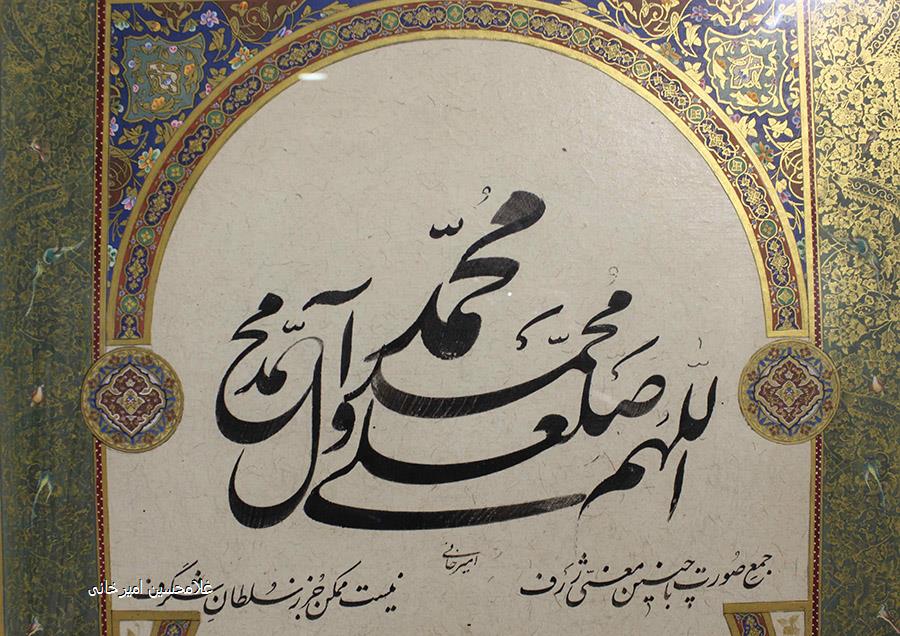 محمّد
اللّهم صلّ علی محمّد وآل محمّد
امیرخانی
جمع صورت با چنین معنیّ ژرف
نیست ممکن جز ز سلطان شگرف
غلامحسین امیرخانی